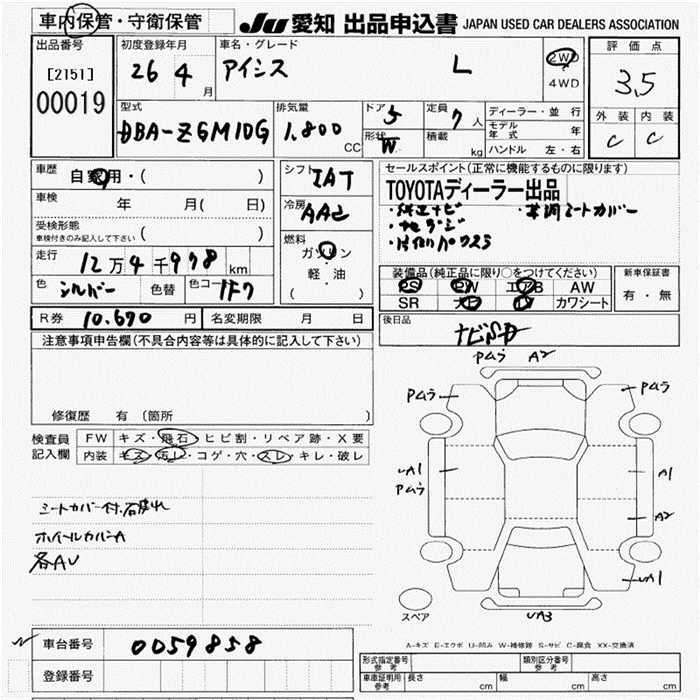 車内保管・守衛保管
JU 愛知 出品申込書 JAPAN USED CAR DEALERS ASSOCIATION
出品番号
[2151]
00019
初度登録年月
26 4 月
車名・グレード
アイシス L
2WD
4WD
評価点
3.5
外装 内装
C C
型式
DBA-ZGM10G
排気量
1.800 CC
ドア 5
形状 W
定員 7 人
積載 kg
ディーラー・並行
モデル年式 年
ハンドル 左・右
車歴
自家用・( )
車検 年 月( 日)
受検形態
車検付きのみ記入して下さい ( )
走行
12万4千978km
色 シルバー 色替 色コード 1F7
シフト
IAT
冷房
AAC
燃料
ガソリン
軽・油
( )
セールスポイント(正常に機能するものに限ります)
TOYOTAディーラー出品
・純正ナビ ・革調シートカバー
・地デジ
・片側パワスラ
装備品(純正品に限り○をつけてください)
PS PW エアB AW
SR ナビ カワシート
新車保証書
有・無
R券 10.690 円 名変期限 月 日
後日品
ナビSD
注意事項申告欄(不具合内容等は具体的に記入して下さい)
修復歴 有(箇所 )
検査員記入欄
FW キズ・飛石・ヒビ割・リペア跡・X要
内装 キズ・汚レ・コゲ・穴・スレ・キレ・破レ
シートカバー付
ホイールカバーA
各AU
Pムラ A2
Pムラ Pムラ
UA1
Pムラ
A1
A2
UA1
UA3
スペア
A-キズ E-エクボ U-凹み W-補修跡 S-サビ C-腐食 XX-交換済
車台番号 0059858
登録番号
形式指定番号 参考 類別区分番号 参考
車庫証明用 参考 長さ cm 幅 cm 高さ cm